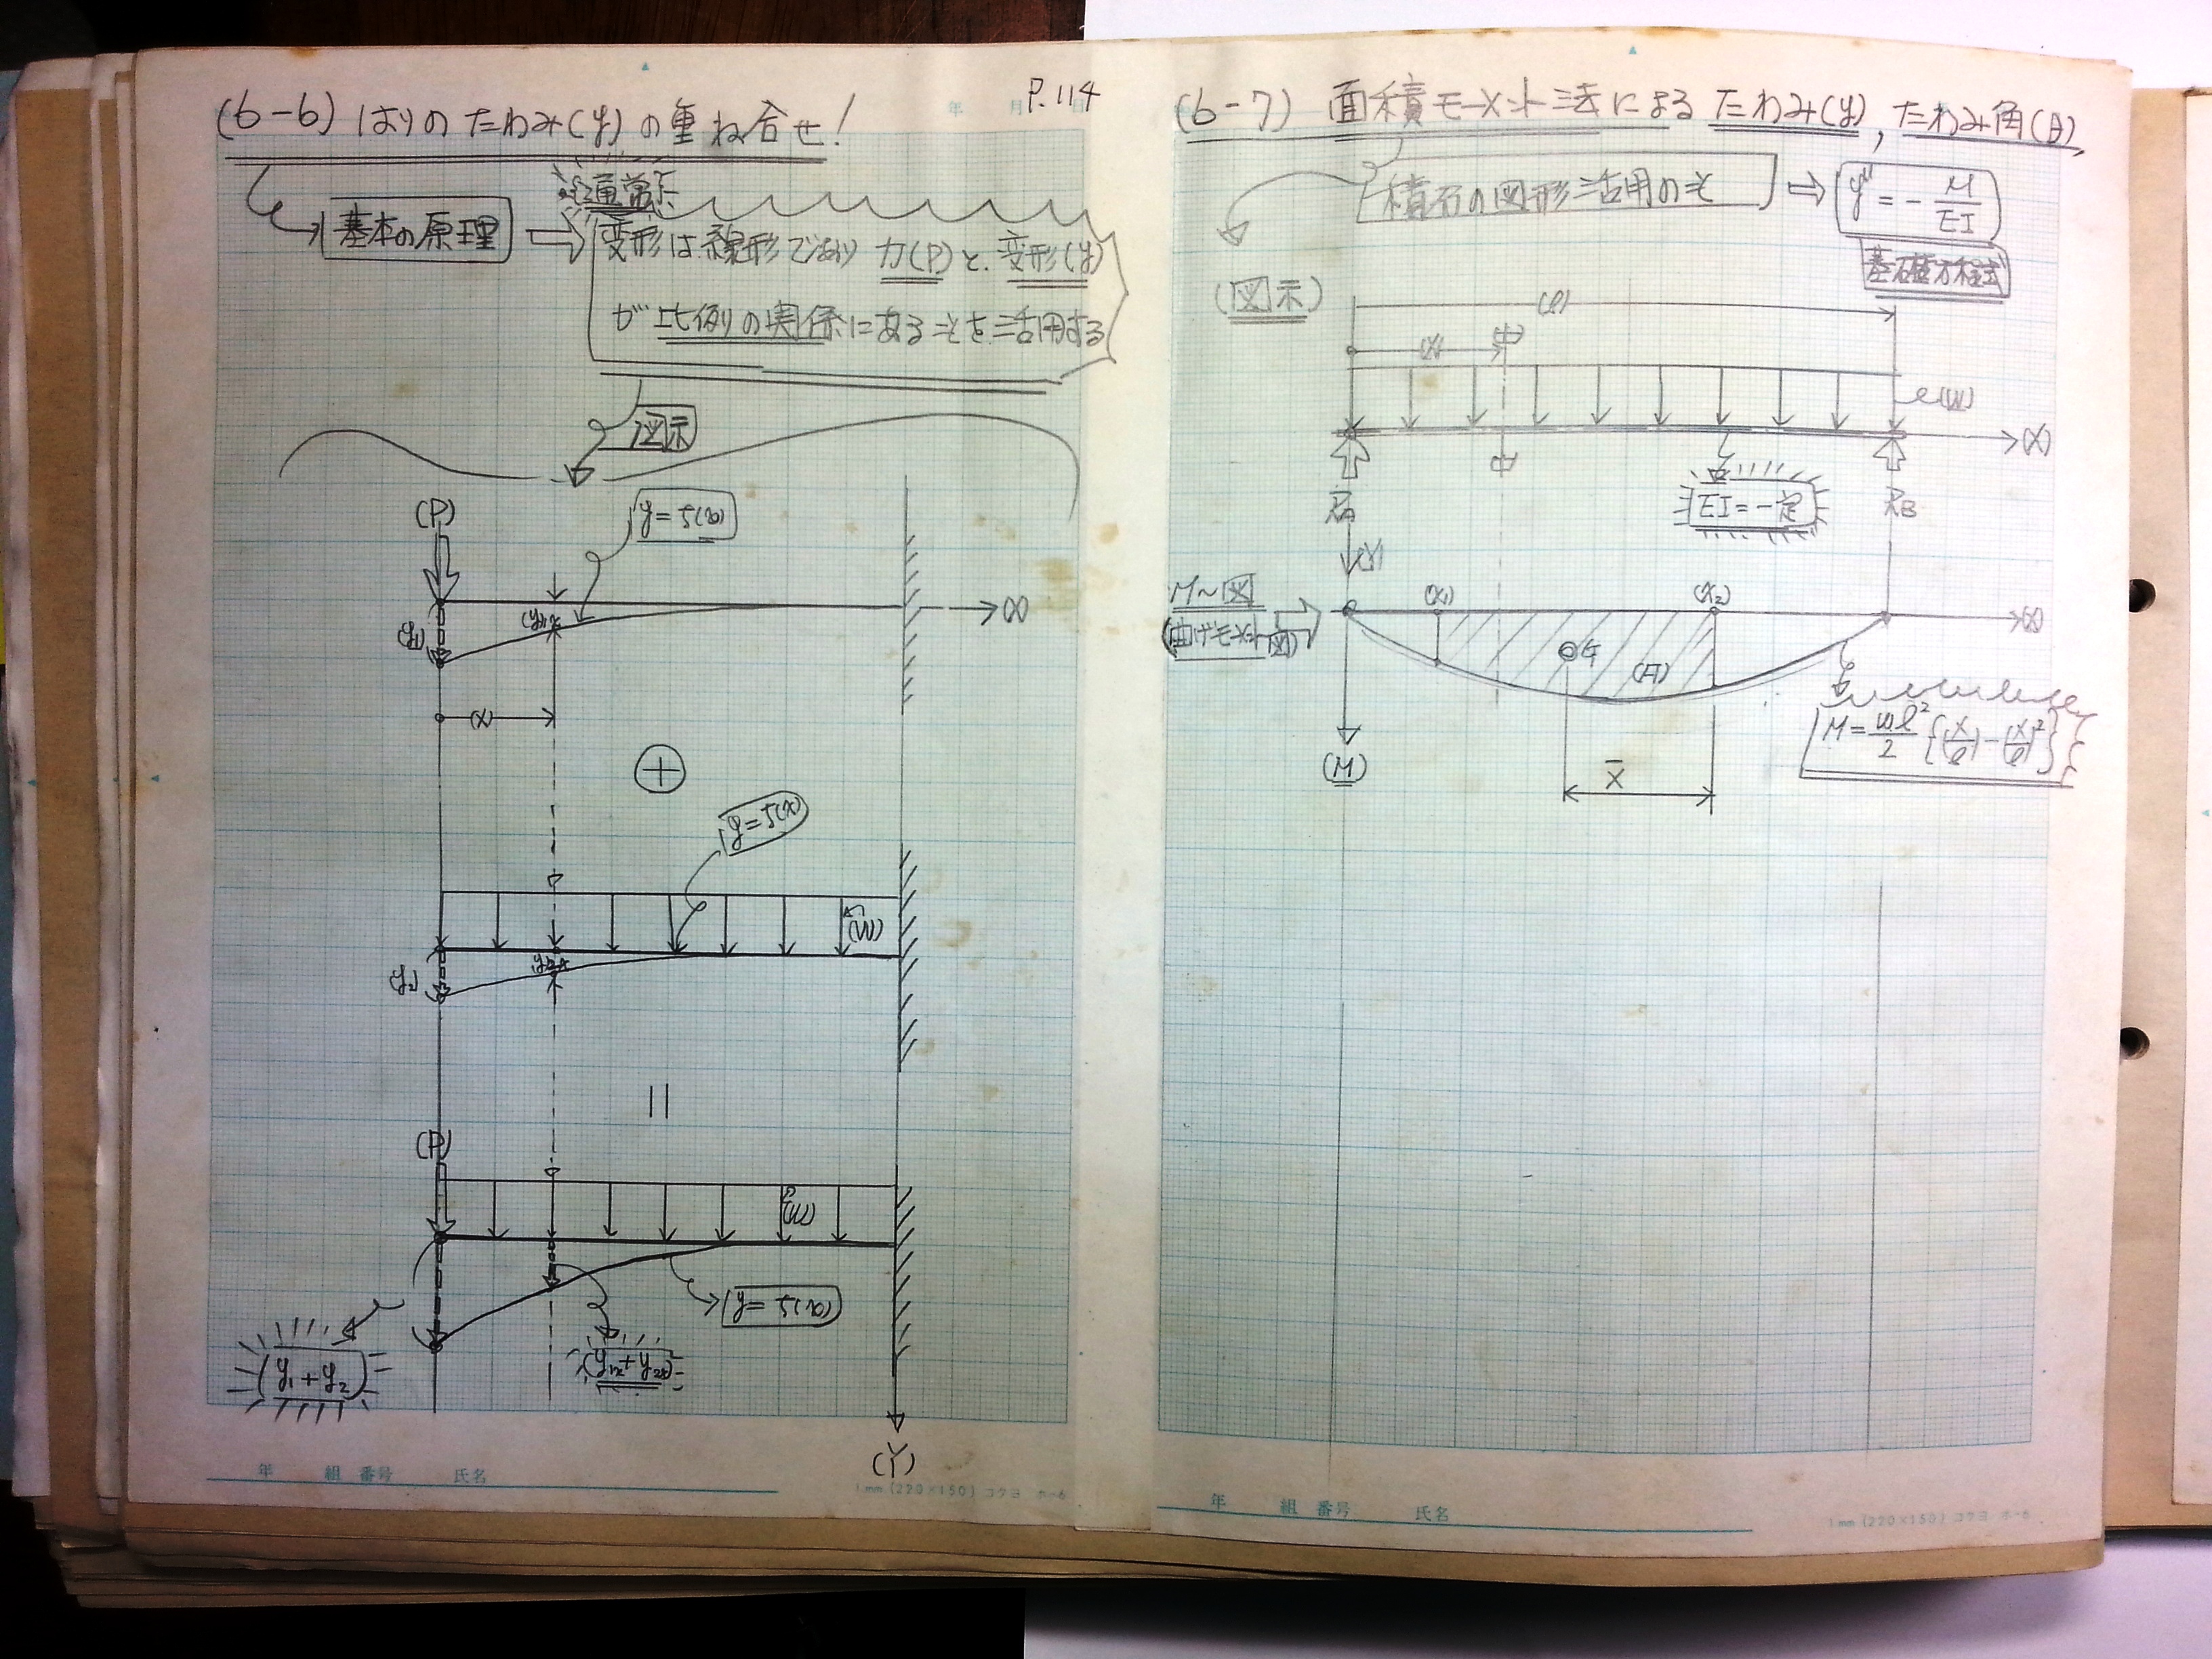 P.114
(6-6) はりのたわみ(y)の重ね合せ!
基本の原理
通常
変形は線形であり 力(P)と、変形(y)
が比例の関係にあることを活用する
図示
(P)
y=f(x)
(y₁)
(x)
(x)
+
y=f(x)
(W)
(y₂)
=
(P)
(W)
y=f(x)
(y₁+y₂)
(y₁ₓ+y₂ₓ)
(Y)
年 組 番号 氏名
1mm (220×150) コクヨ ホ-6
年 月 日
(6-7) 面積モーメント法による たわみ(y), たわみ角(θ)
y''=-M/EI
基礎方程式
(図示)
(ℓ)
(x)
(W)
(X)
EI=一定
RA
RB
(Y)
M~図
(曲げモーメント図)
(x₁)
(x₂)
(X)
G
(A)
M=wℓ²/2{(x/ℓ)-(x/ℓ)²}
x̄
(M)
年 組 番号 氏名
1mm (220×150) コクヨ ホ-6